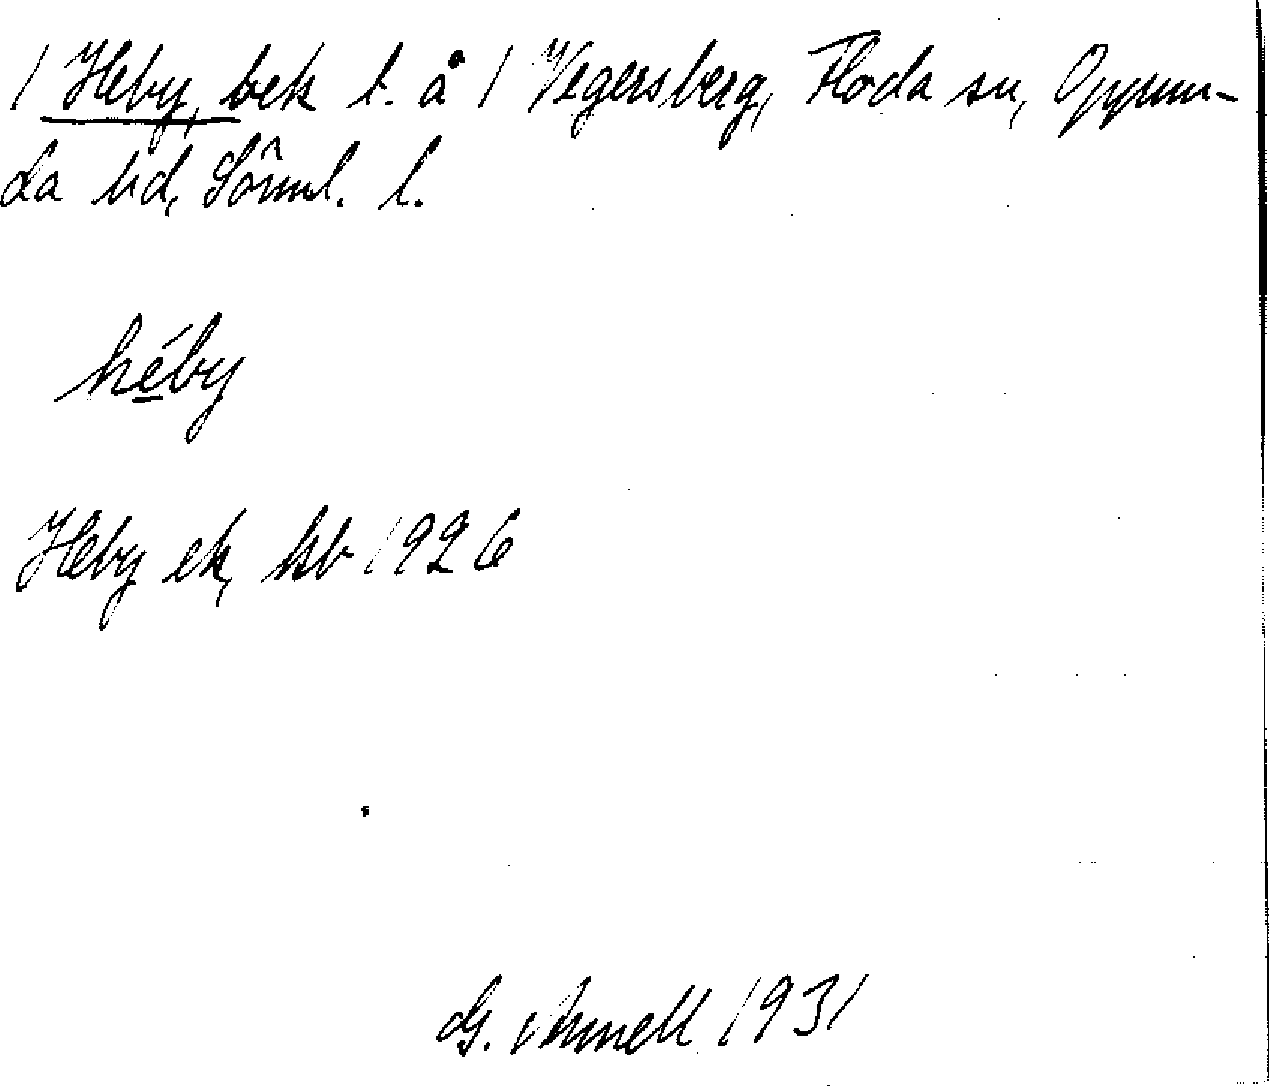 1 Heby, bek l. å 1 Vegersberg, Floda sn, Oppun-
da hd, Sörml. l.
héby
Heby ek, kb 1926
G. 1931